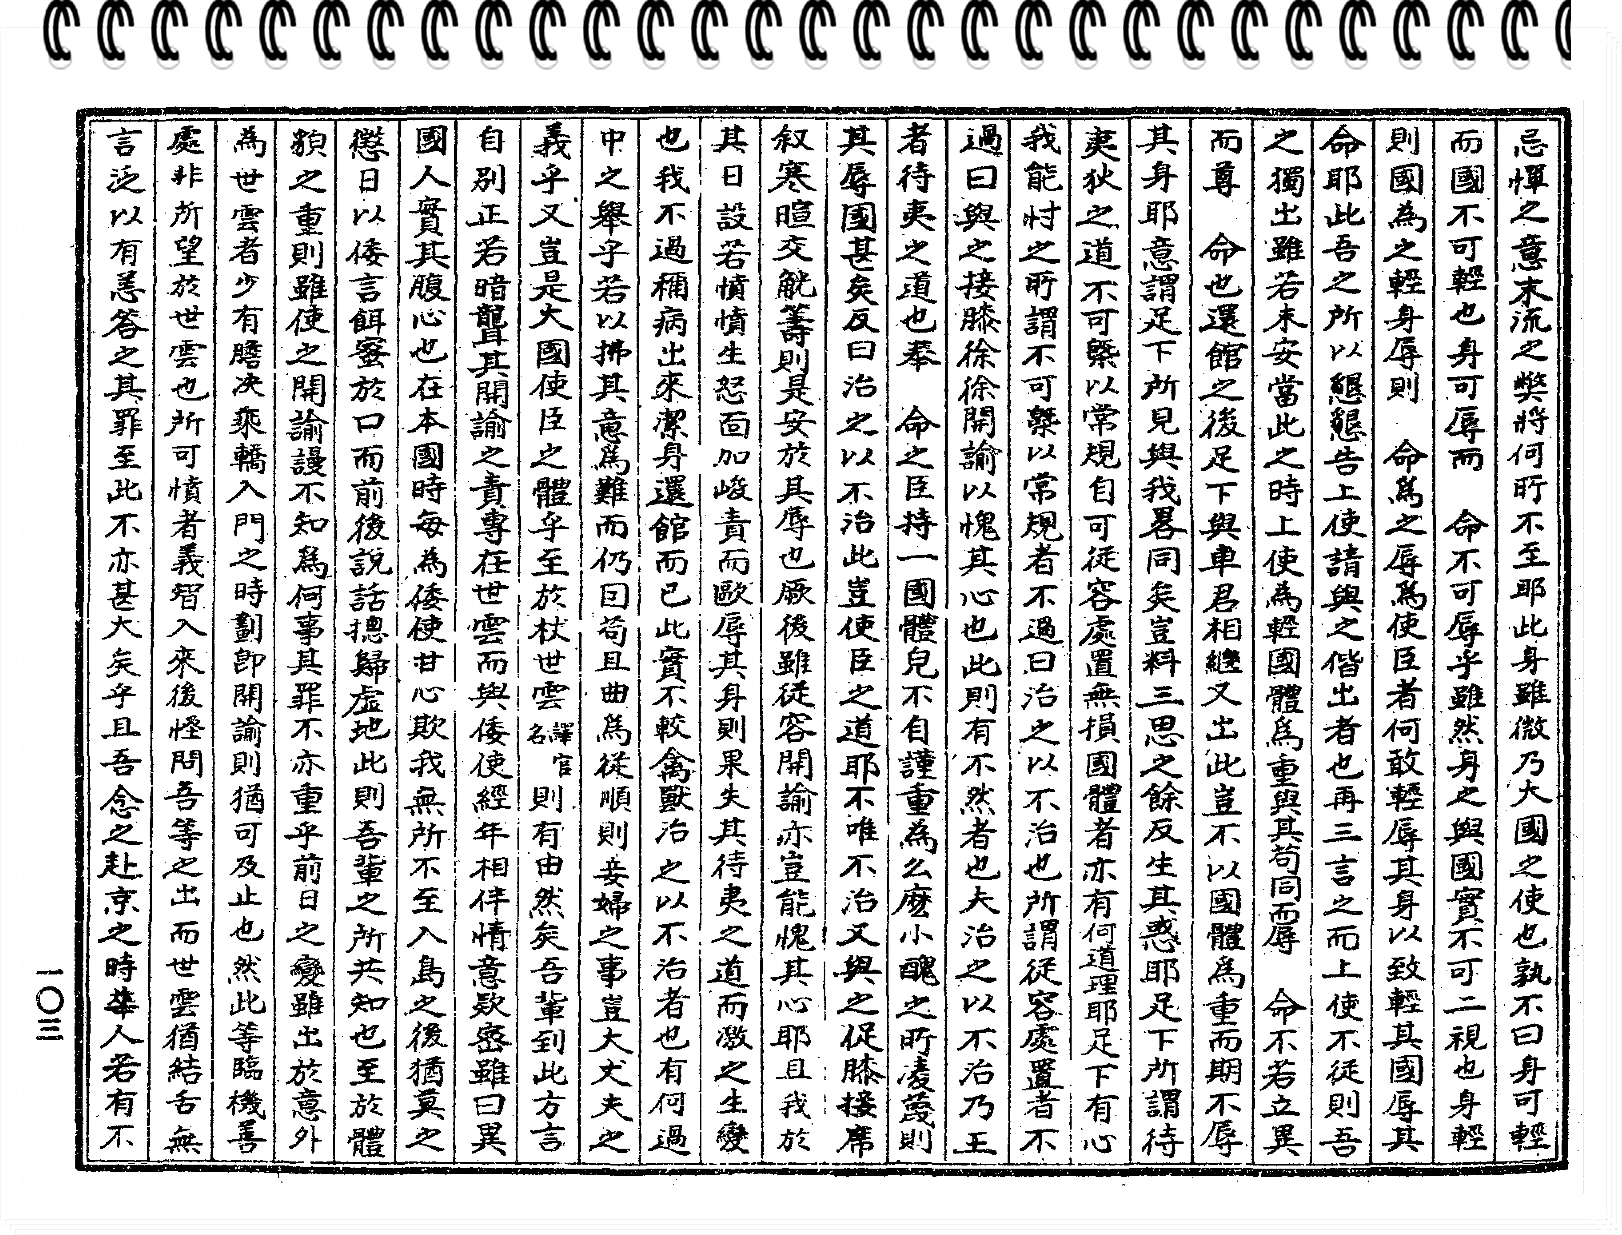 忌憚之意末流之獘將何所不至耶此身雖微乃大國之使也孰不曰身可輕
而國不可輕也身可辱而　命不可辱乎雖然身之與國實不可二視也身輕
則國為之輕身辱則　命爲之辱爲使臣者何敢輕辱其身以致輕其國辱其
命耶此吾之所以懇懇告上使請與之偕出者也再三言之而上使不從則吾
之獨出雖若未安當此之時上使為輕國體爲重與其苟同而辱　命不若立異
而尊　命也還館之後足下與車君相繼又出此豈不以國體爲重而期不辱
其身耶意謂足下所見與我畧同矣豈料三思之餘反生其惑耶足下所謂待
夷狄之道不可槩以常規自可從容處置無損國體者亦有何道理耶足下有心
我能忖之所謂不可槩以常規者不過曰治之以不治也所謂從容處置者不
過曰與之接膝徐徐開諭以愧其心也此則有不然者也夫治之以不治乃王
者待夷之道也奉　命之臣持一國體皃不自謹重為么麽小醜之所凌蔑則
其辱國甚矣反曰治之以不治此豈使臣之道耶不唯不治又與之促膝接席
叙寒暄交觥籌則是安於其辱也厥後雖從容開諭亦豈能愧其心耶且我於
其日設若憤憤生怒面加峻責而歐辱其身則果失其待夷之道而激之生變
也我不過稱病出來潔身還館而已此實不較禽獸治之以不治者也有何過
中之舉乎若以拂其意爲難而仍囙苟且曲爲從順則妾婦之事豈大丈夫之
義乎又豈是大國使臣之體乎至於杖世雲譯官名則有由然矣吾軰到此方言
自別正若暗聾其開諭之責專在世雲而與倭使經年相伴情意欵密雖曰異
國人實其腹心也在本國時每為倭使甘心欺我無所不至入島之後猶莫之
懲日以倭言餌蜜於口而前後說話摠歸虛地此則吾輩之所共知也至於體
貌之重則雖使之開諭謾不知爲何事其罪不亦重乎前日之變雖出於意外
為世雲者少有膽決乘轎入門之時劃卽開諭則猶可及止也然此等臨機善
處非所望於世雲也所可憤者義智入來後怪問吾等之出而世雲猶結舌無
言泛以有恙答之其罪至此不亦甚大矣乎且吾念之赴京之時華人若有不
一〇三